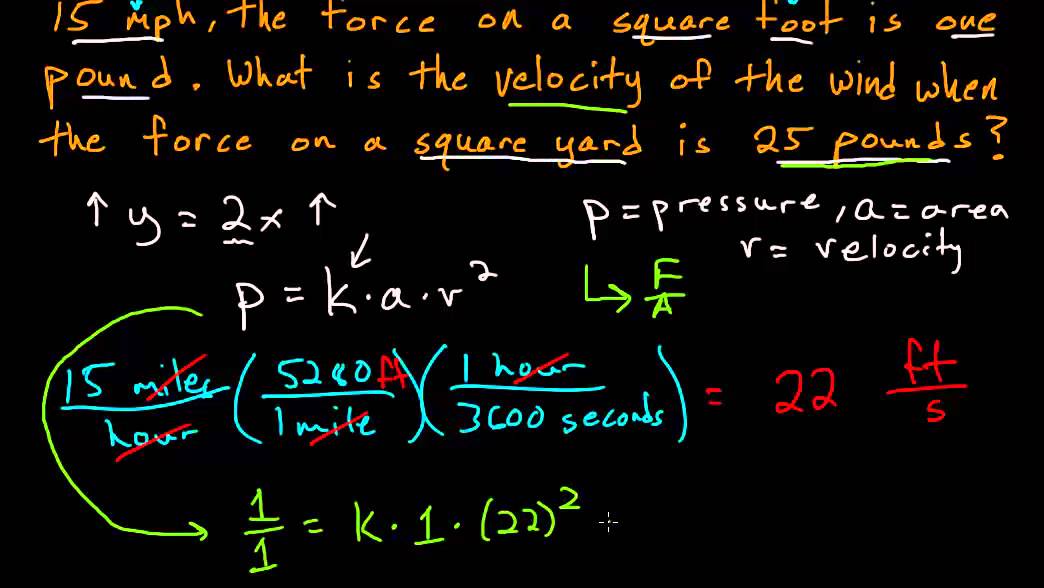 15 mph, the force on a square foot is one
pound. What is the velocity of the wind when
the force on a square yard is 25 pounds?
↑ y = 2x ↑
p = pressure, a = area
v = velocity
p = k · a · v²
↳ F/A
15 miles/hour (5280 ft/1 mile)(1 hour/3600 seconds) = 22 ft/s
1/1 = k · 1 · (22)²